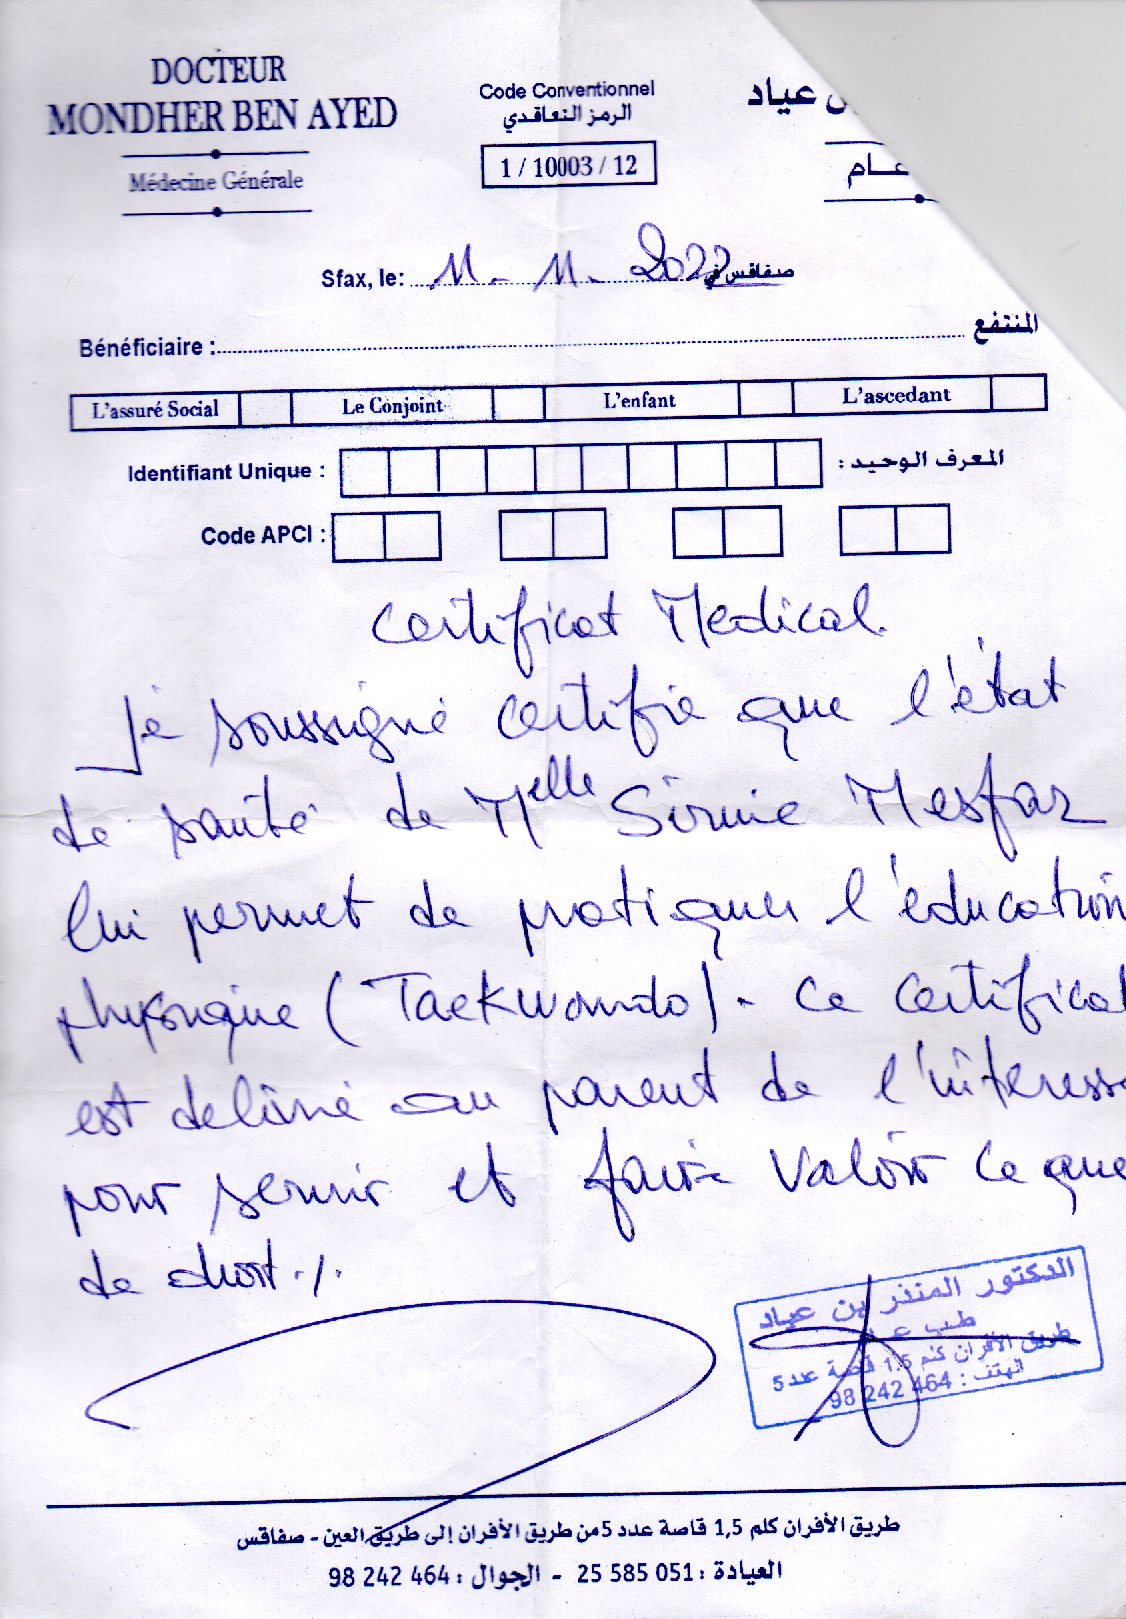 DOCTEUR
MONDHER BEN AYED
Médecine Générale
Code Conventionnel
الرمز التعاقدي
1 / 10003 / 12
ن عياد
عـام
Sfax, le: 11. 11. 2022 صفاقس في
Bénéficiaire : المنتفع
L'assuré Social Le Conjoint L'enfant L'ascedant
Identifiant Unique : المعرف الوحيد :
Code APCI :
Certificat Medical.
Je soussigné certifie que l'état
de santé de Melle Sirine Mesfar
lui permet de pratiquer l'éducation
physique (Taekwondo). Ce certificat
est delivré au parent de l'interessé
pour servir et faire valoir ce que
de droit ./.
الدكتور المنذر بن عياد
طب عـ
طريق الأفران كلم 1.5 قاصة عدد 5
الهتف : 98 242 464
طريق الأفران كلم 1,5 قاصة عدد 5 من طريق الأفران إلى طريق العين - صفاقس
العيادة : 25 585 051 - الجوال : 98 242 464